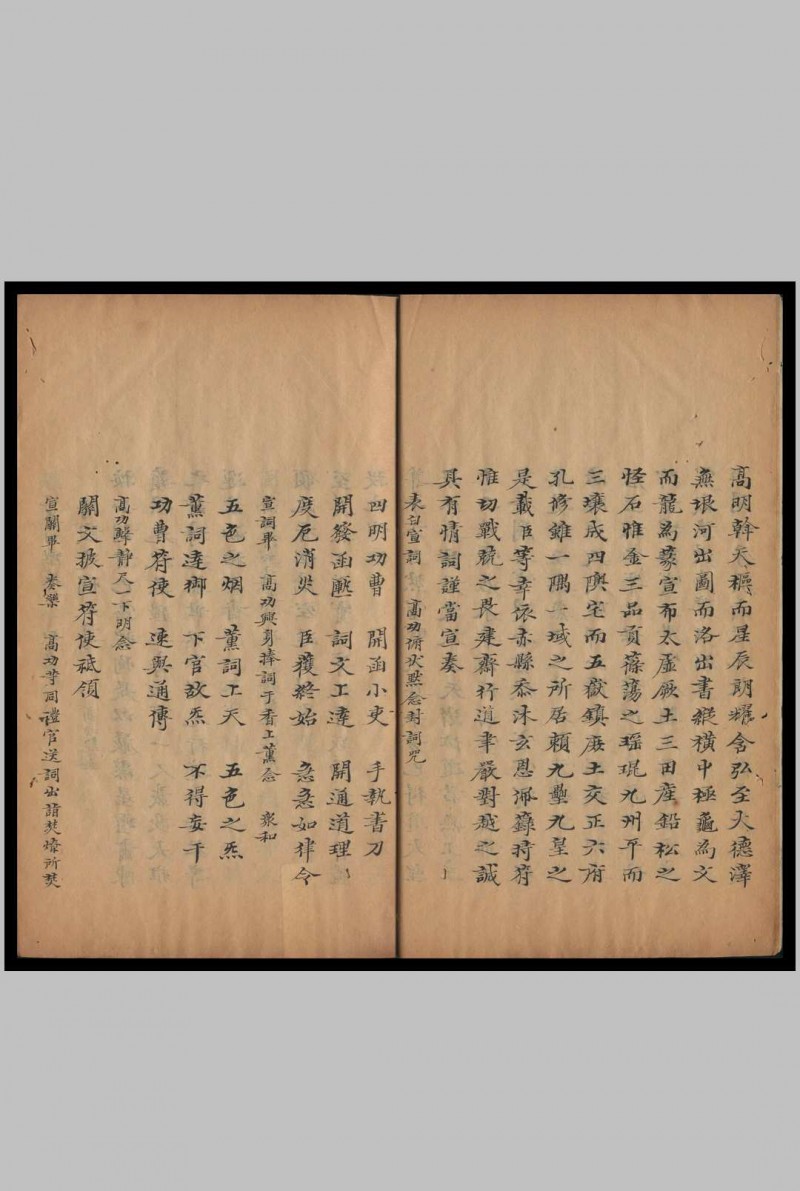 高明幹天樞而星辰朗耀含弘至大德澤
無垠河出圖而洛出書縱橫中極龜為文
而龍為彖宣布太虛厥土三田產鉛松之
怪石惟金三品貢篠蕩之瑶琨九州平而
三壤成四隩宅而五嶽鎮庶土交正六府
孔修雖一隅一域之所居頼九壘九皇之
是載臣等幸依赤縣忝沐玄恩佩籙持符
惟切戰兢之畏建齋行道聿嚴對越之誠
具有情詞謹當宣奏
表白宣詞 高功俯伏默念封詞咒
四明功曹 開函小吏 手執書刀
開發函匭 詞文上達 開通道理
度厄消災 臣獲終始 急急如律令
宣詞畢 高功興身捧詞于香上薰念 衆和
五色之烟 薰詞上天 五色之炁
薰詞達鄉 下官故炁 不得妄干
功曹符使 速與通傳
高功鳴靜尺一下明念
關文披宣符使祗領
宣關畢 奏樂 高功等同禮官送詞出詣焚燎所焚